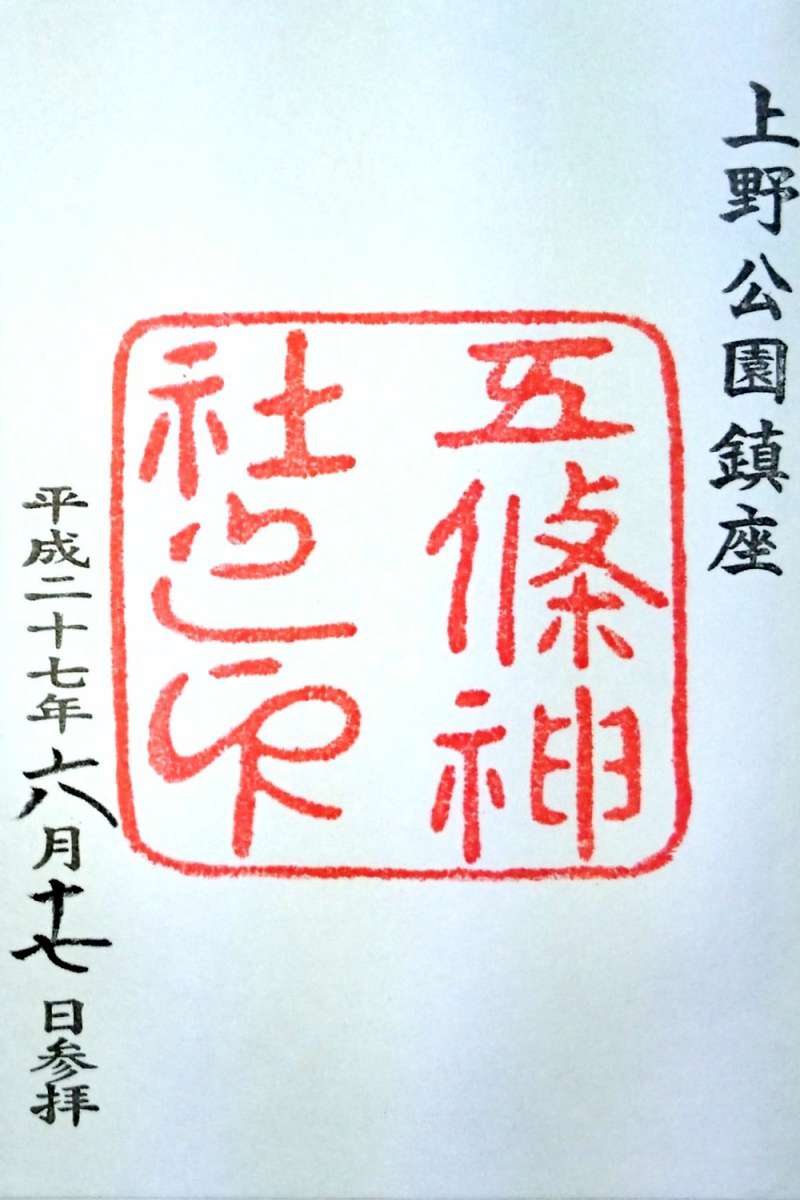 上野公園鎮座
五條神
社之印
平成二十七年六月十七日参拝